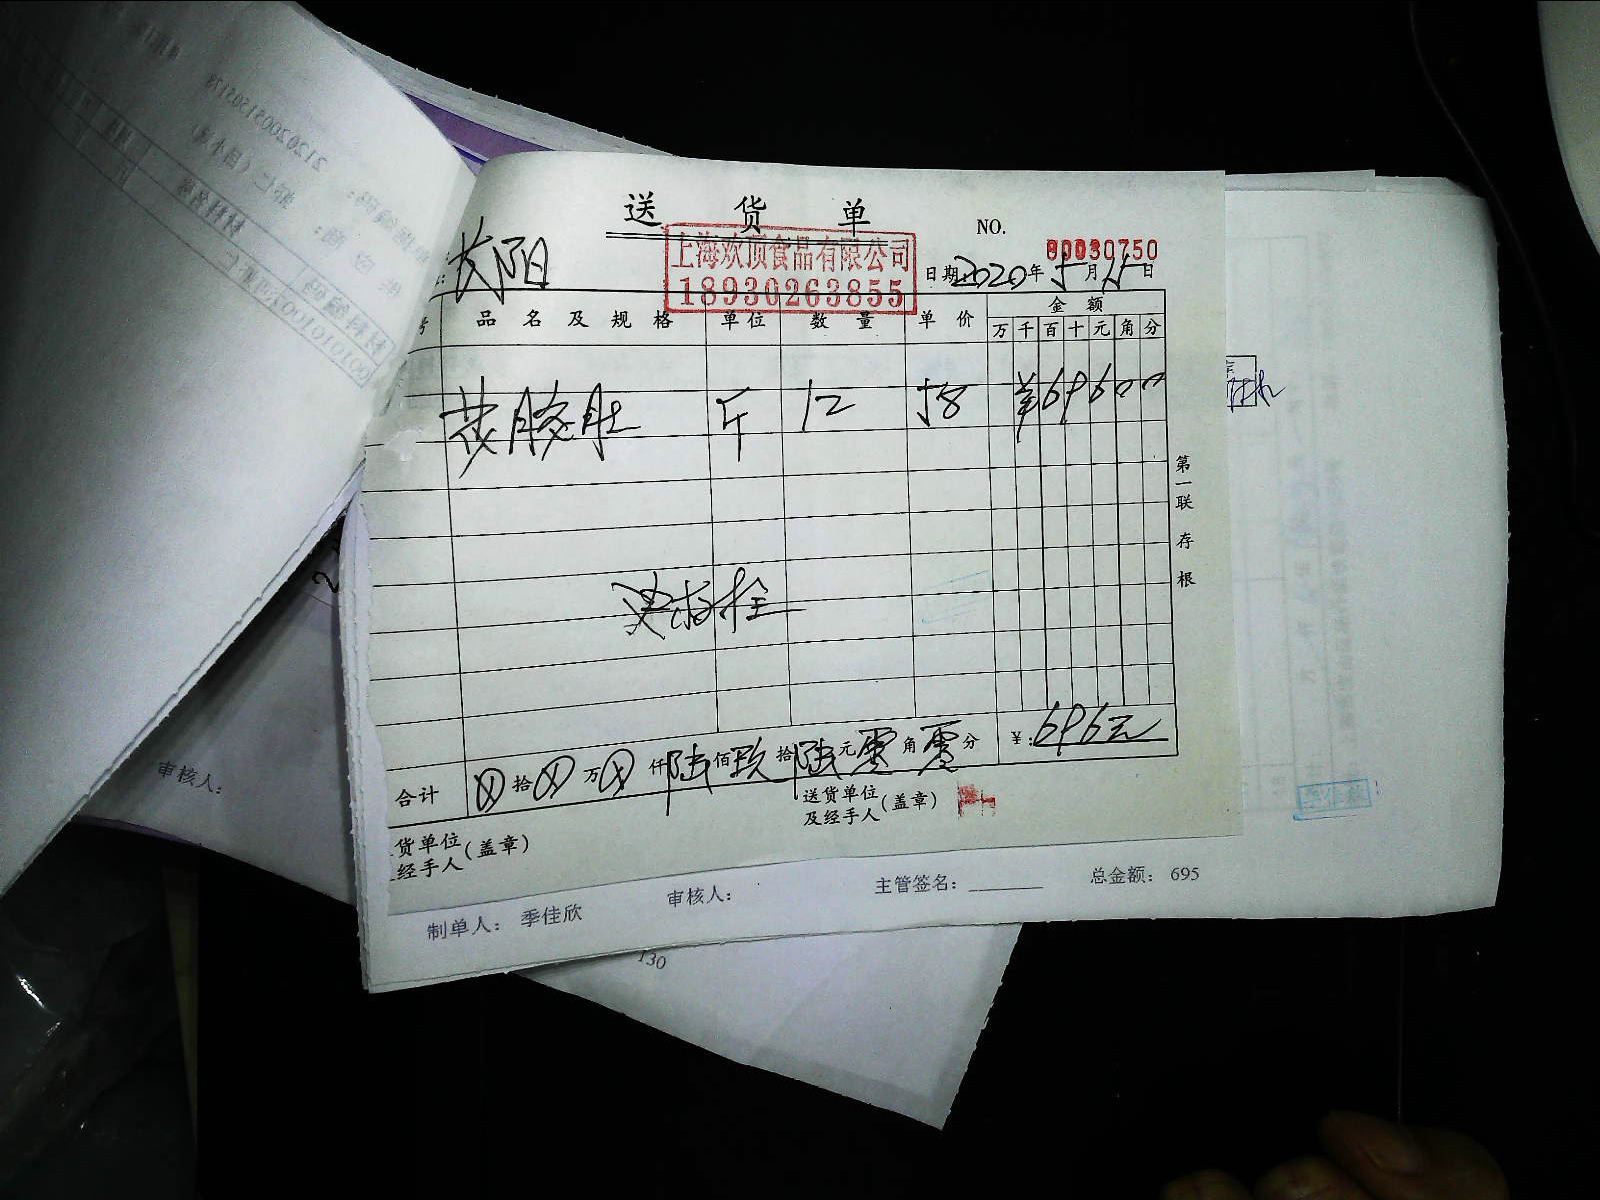 送货单
NO.
00030750
上海欢顶食品有限公司
18930263855
长阳
日期2020年5月15日
品名及规格 单位 数量 单价 金额
万 千 百 十 元 角 分
黄胶肚 斤 12 58 ¥69600
第一联 存根
合计 ⊗拾⊗万⊗仟陆佰玖拾陆元零角零分 ¥:696元
送货单位
及经手人(盖章)
货单位
经手人(盖章)
制单人: 季佳欣 审核人: 主管签名: 总金额: 695
审核人:
130
212020051505178
材料名称
材料编码